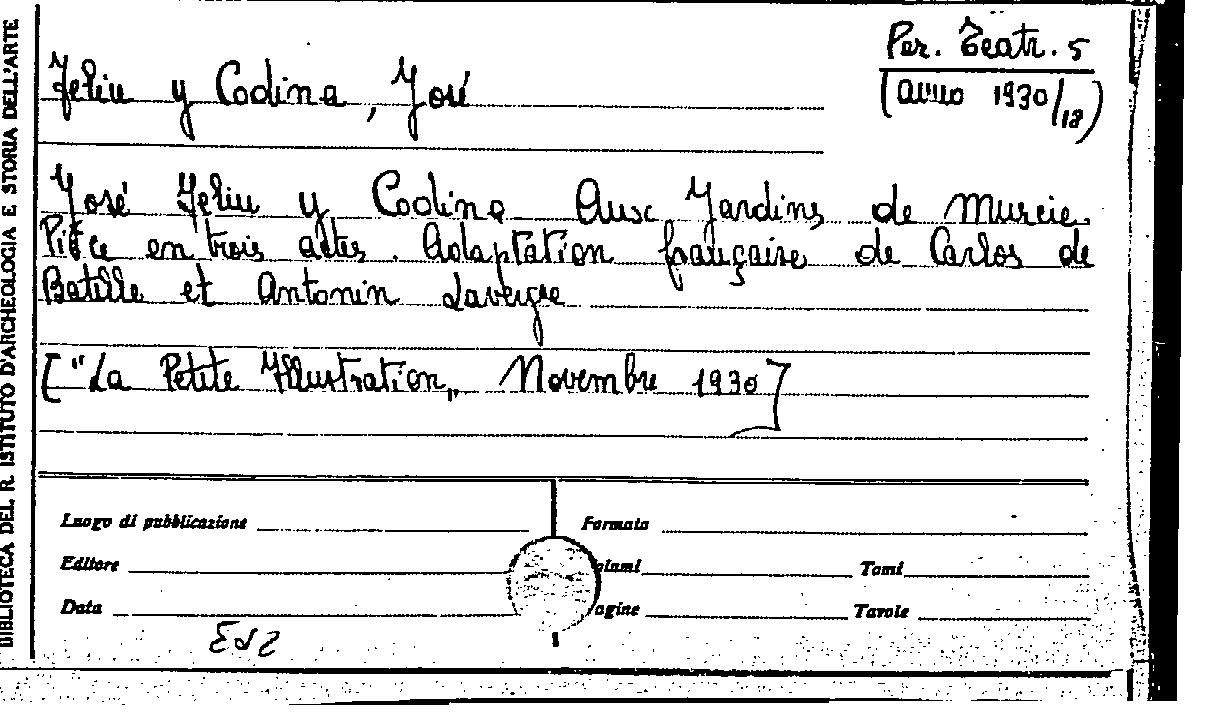 BIBLIOTECA DEL R. ISTITUTO D'ARCHEOLOGIA E STORIA DELL'ARTE
Per. Teatr. 5
(anno 1930/18)
Feliu y Codina, José
José Feliu y Codina Aux Jardins de Murcie.
Pièce en trois actes. Adaptation française de Carlos de
Batlle et Antonin Lavergne
["La Petite Illustration„ Novembre 1930]
Luogo di pubblicazione
Formato
Editore
Tomi
Data
agine
Tavole